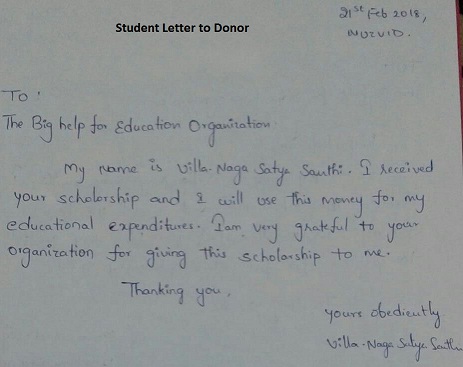 21st Feb 2018,
Student Letter to Donor
NUZVID.
To
The Big help for Education Organization
My name is Villa. Naga Satya Santhi. I received
your scholorship and I will use this money for my
educational expenditures. I am very grateful to your
organization for giving this scholorship to me.
Thanking you,
yours obediently
Villa. Naga Satya Santhi